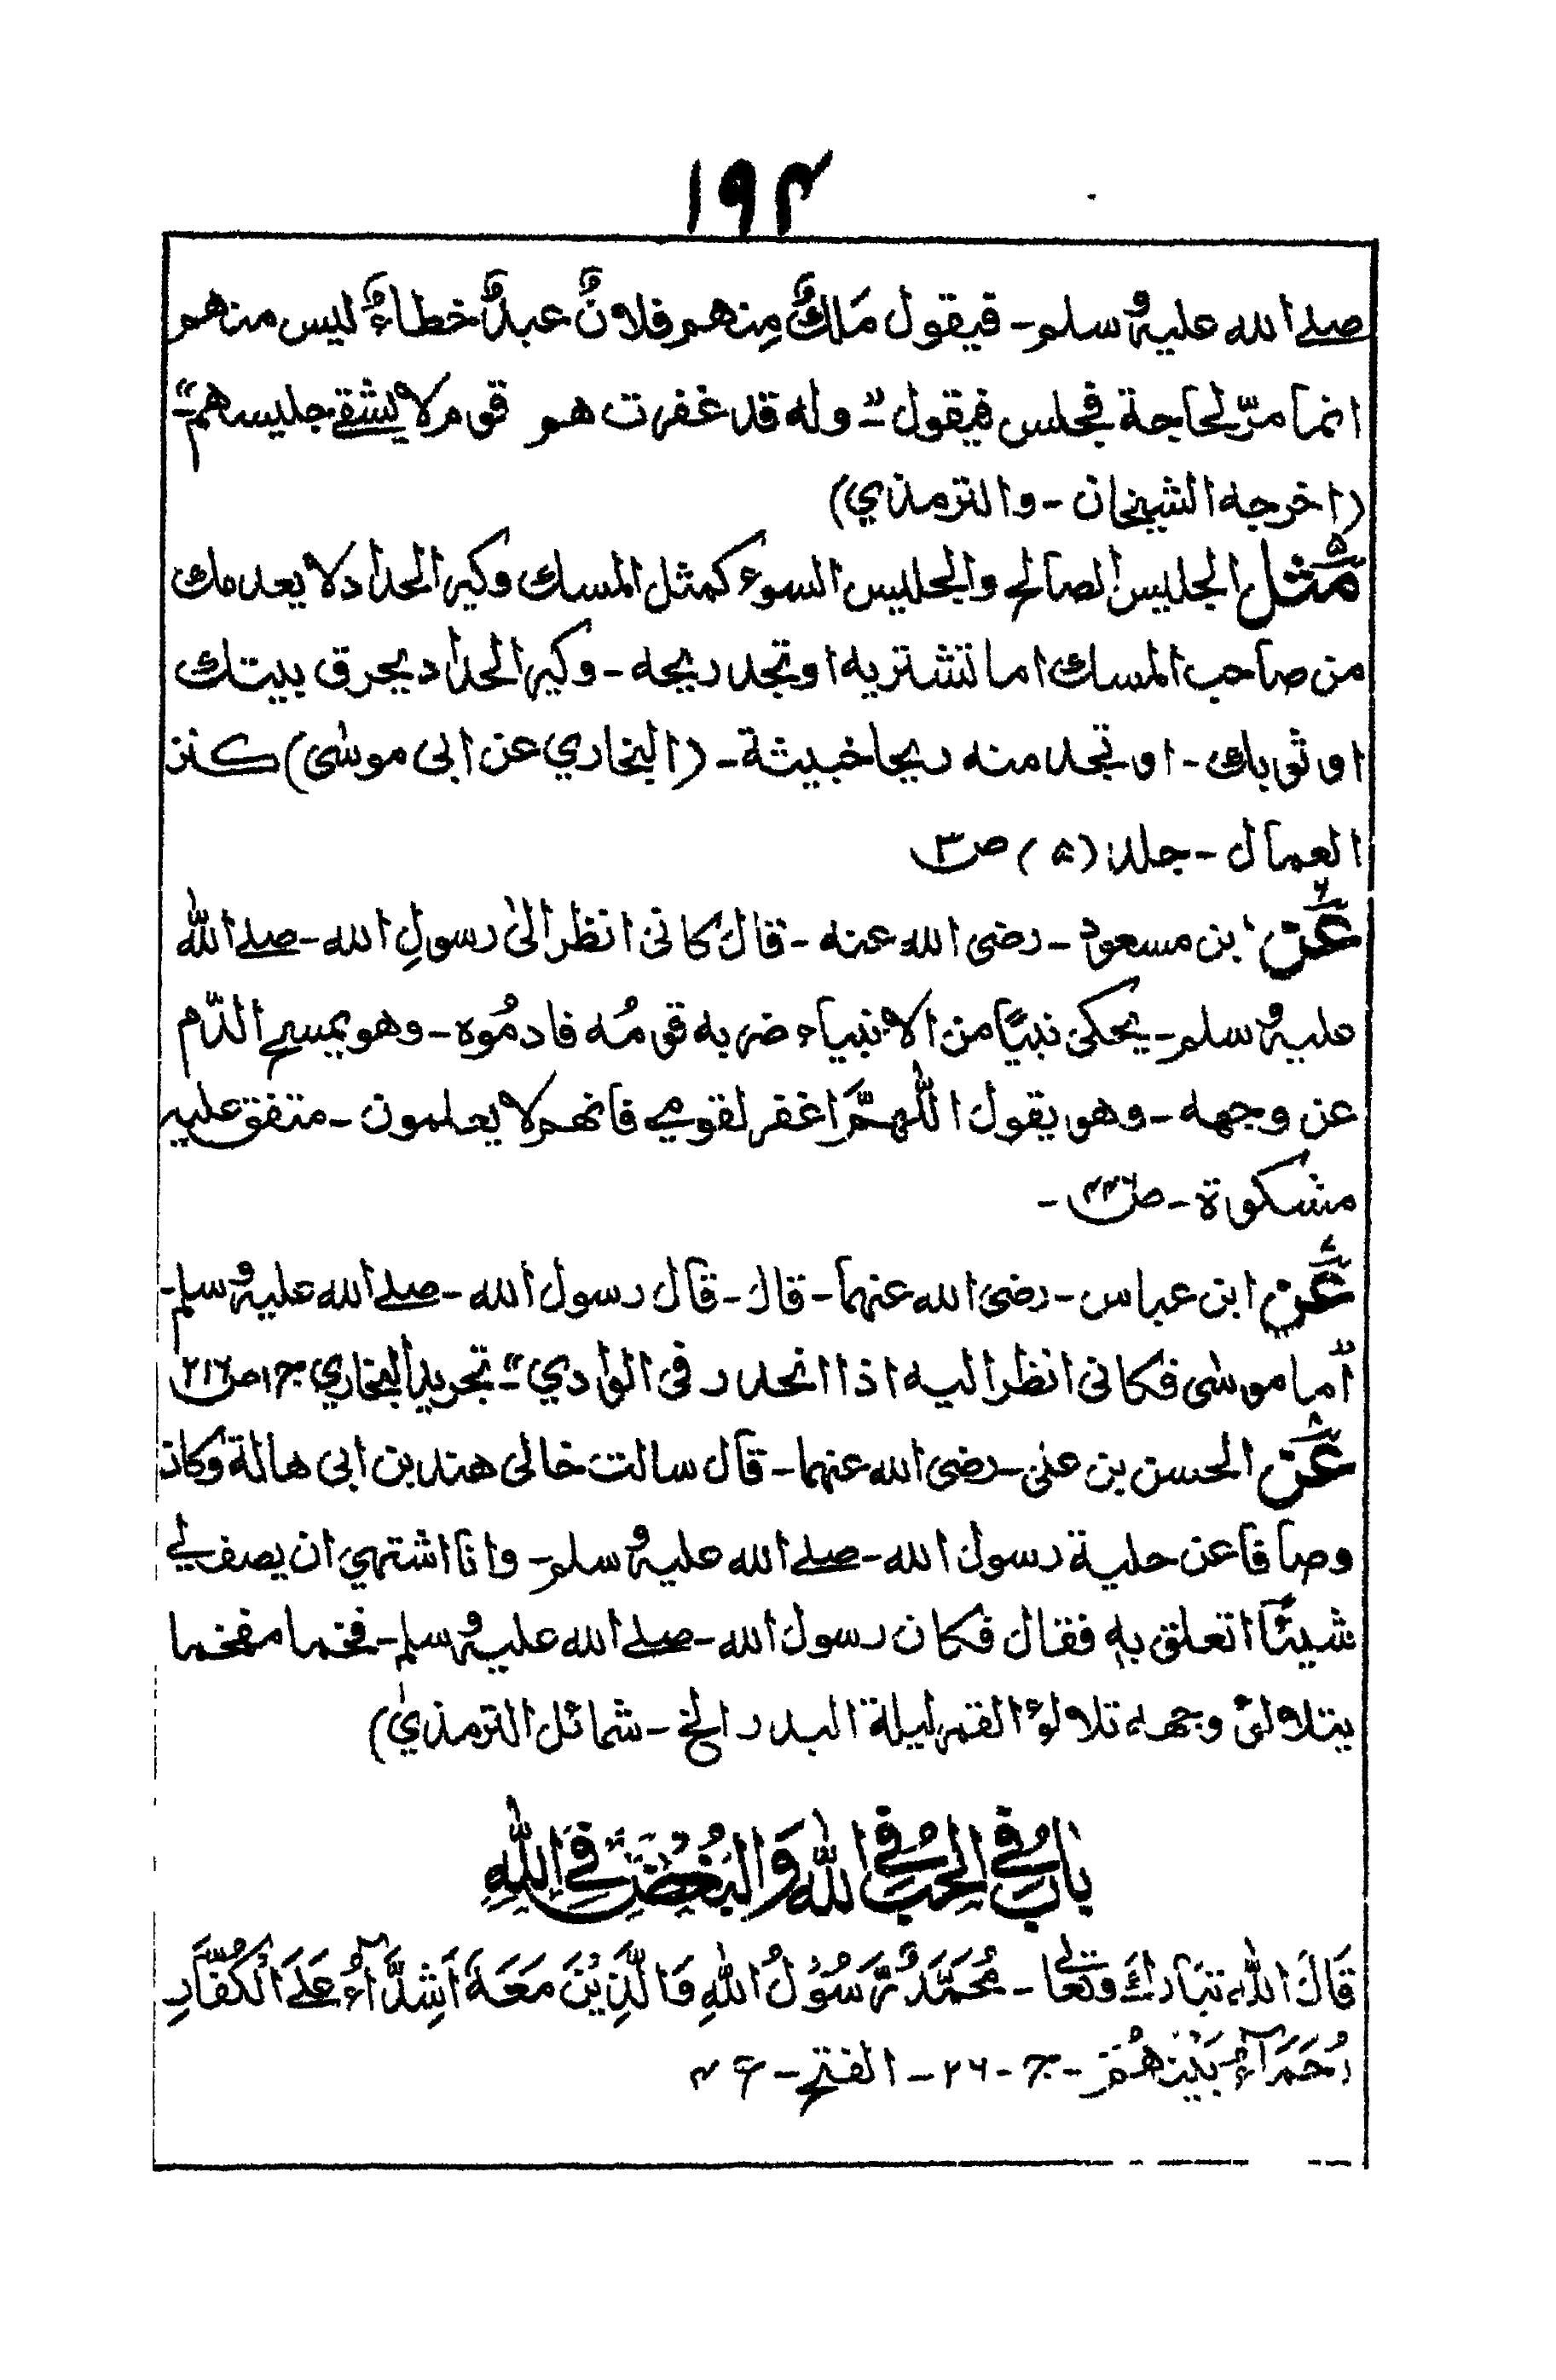 ۱۹۴
صلے الله عليه وسلم - فيقول مَلكٌ مِنهم فلانٌ عبدٌ خطاءٌ ليس منهم
انما مرّ لحاجة فجلس فيقول "- وله قد غفرت هم قوم لا يشقے جليسهم"-
(اخرجه الشيخان - والترمذي)
۵ مَثل الجليس الصالح والجليس السوء كمثل المسك وكير الحداد لا يعدمك
من صاحب المسك اما تشتريه او تجد ريحه - وكير الحداد يحرق بيتك
او ثوبك - او تجد منه ريحا خبيثة - (البخاري عن ابى موسٰى) كنز
العمال - جلد (۵) ص۳
۶ عَن ابن مسعود - رضى الله عنه - قال كانى انظر الىٰ رسولِ الله - صلے اللّٰه
عليه وسلم - يحكى نبيًا من الانبياء ضربه قومُه فادمُوه - وهو يمسح الدّم
عن وجهه - وهو يقول اللّٰهمَّ اغفر لقومي فانهم لا يعلمون - متفق عليه
مشكوٰة - ص۴۴۶ -
۷ عَن ابن عباس - رضى الله عنهما - قال - قال رسول الله - صلے الله عليه وسلم -
"اما موسٰى فكانى انظر اليه اذا انحدر فى الوادي"- تجريد البخاري ج۱ ص۲۱۶
۸ عَن الحسن بن على - رضى الله عنهما - قال سالت خالى هند بن ابى هالة وكان
وصافا عن حلية رسول الله - صلے الله عليه وسلم - وانا اشتهي ان يصف لي
شيئًا اتعلق به فقال فكان رسول الله - صلے الله عليه وسلم - فخما مفخما
يتلالئ وجهه تلالؤ القمر ليلة البدر الخ - شمائل الترمذي)
بابُ فِى الحُبِّ فِى اللّٰهِ وَالبُغْضِ فِى اللّٰهِ
قَالَ اللّٰه تبَارك وتعٰا - مُحَمَّدٌ رَّسُوْلُ اللّٰهِ وَالَّذِيْنَ مَعَهٗ اَشِدَّآءُ عَلَى الْكُفَّارِ
رُحَمَآءُ بَيْنَهُمْ - ج - ۲۶ - الفتح - ع ۴